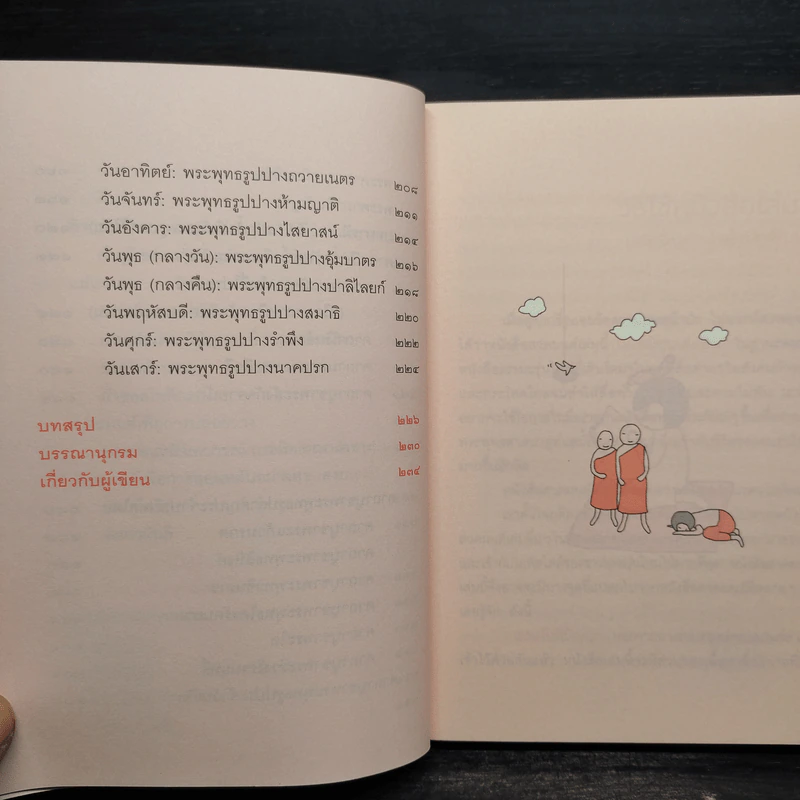 วันอาทิตย์: พระพุทธรูปปางถวายเนตร ๒๐๘
วันจันทร์: พระพุทธรูปปางห้ามญาติ ๒๑๑
วันอังคาร: พระพุทธรูปปางไสยาสน์ ๒๑๔
วันพุธ (กลางวัน): พระพุทธรูปปางอุ้มบาตร ๒๑๖
วันพุธ (กลางคืน): พระพุทธรูปปางปาลิไลยก์ ๒๑๘
วันพฤหัสบดี: พระพุทธรูปปางสมาธิ ๒๒๐
วันศุกร์: พระพุทธรูปปางรำพึง ๒๒๒
วันเสาร์: พระพุทธรูปปางนาคปรก ๒๒๔
บทสรุป ๒๒๖
บรรณานุกรม ๒๓๐
เกี่ยวกับผู้เขียน ๒๓๔